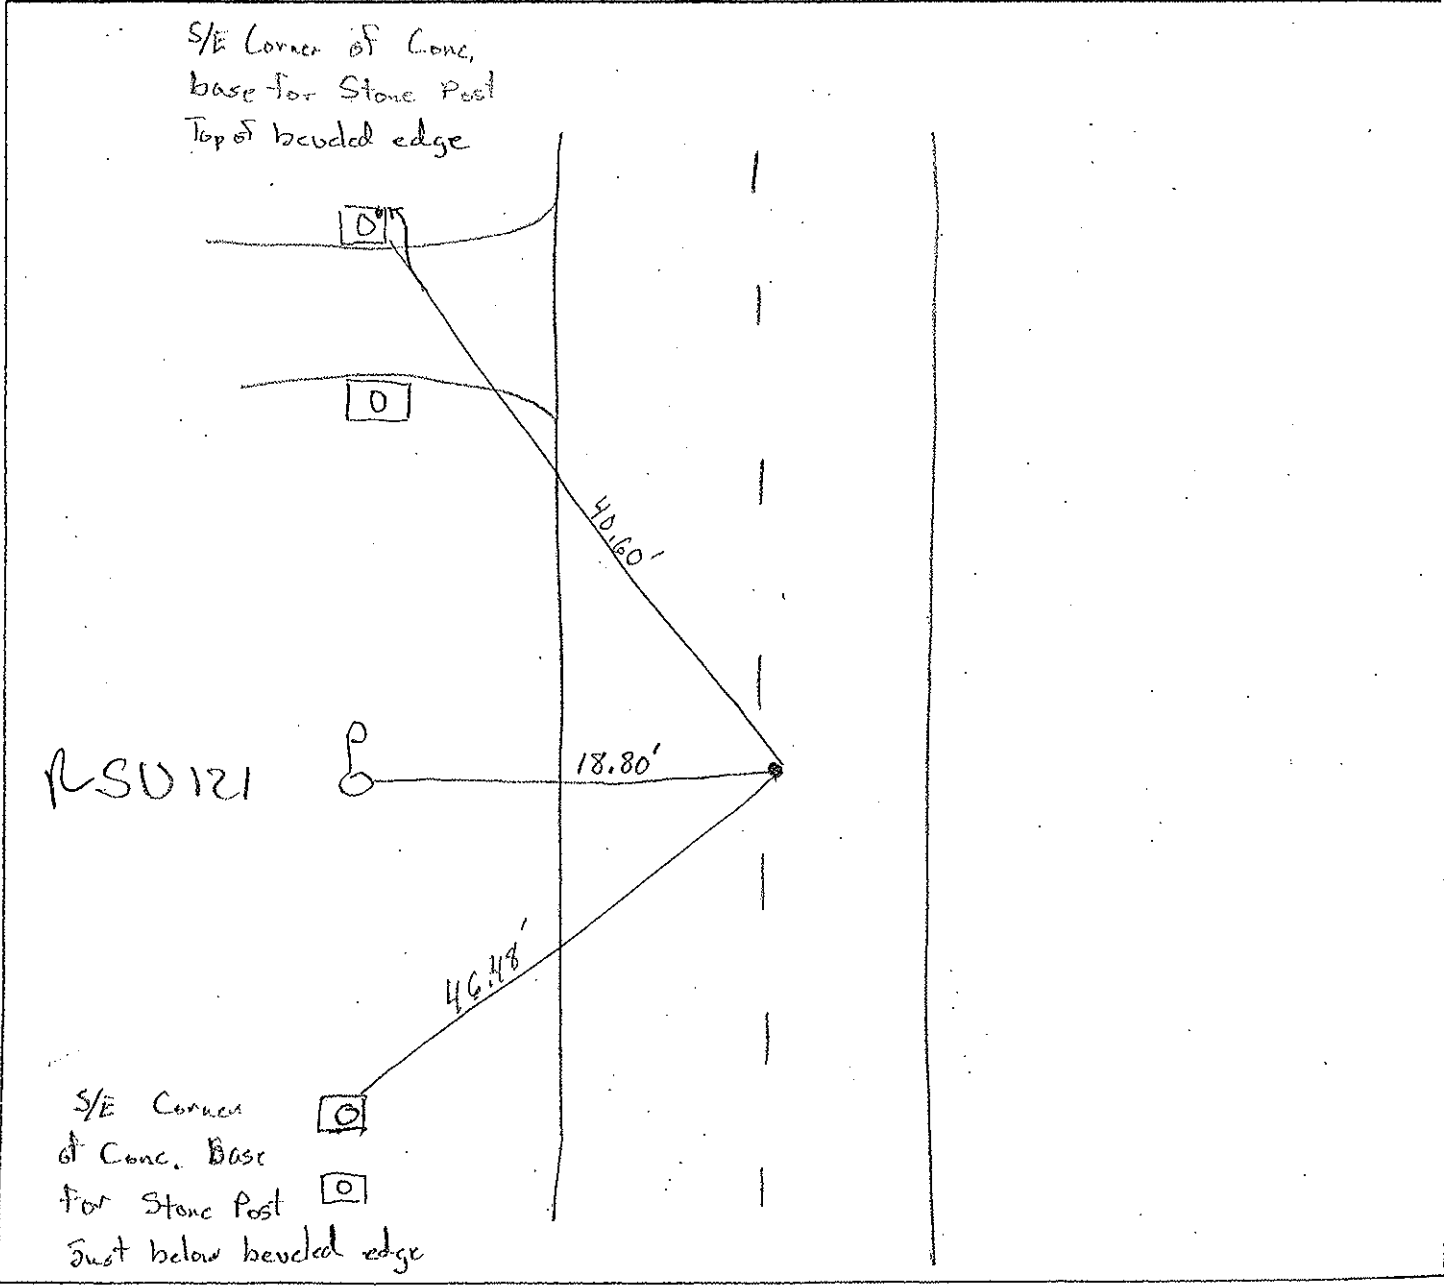 S/E Corner of Conc,
base for Stone Post
Top of beveled edge
40.60'
18.80'
RSU121
46.48'
S/E Corner
of Conc. Base
for Stone Post
Just below beveled edge